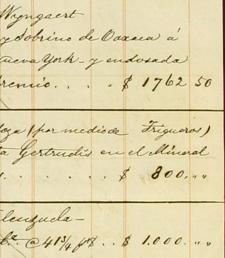 Wyngaert
y Sobrino de Oaxaca á
nueva York - y endosada
premio . . . . $ 1762 50
loza (por medio de Trigueros)
ta Gertrudis en el Mineral
. . . . $ 800. ,, ,,
lenzuela -
@ 41 3/4 $ 1.000. ,, ,,